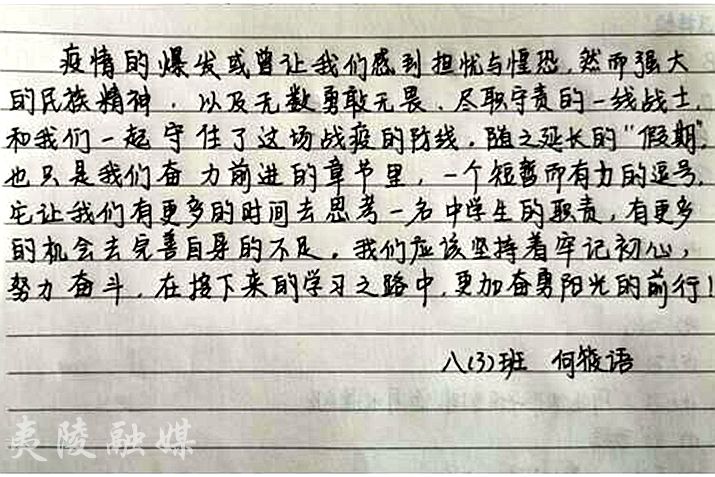 疫情的爆发或曾让我们感到担忧与惶恐，然而强大
的民族精神，以及无数勇敢无畏、尽职守责的一线战士，
和我们一起守住了这场战疫的防线。随之延长的“假期”，
也只是我们奋力前进的章节里，一个短暂而有力的逗号，
它让我们有更多的时间去思考一名中学生的职责，有更多
的机会去完善自身的不足。我们应该坚持着牢记初心，
努力奋斗，在接下来的学习之路中，更加奋勇阳光的前行！
八(3)班 何筱语
夷陵融媒